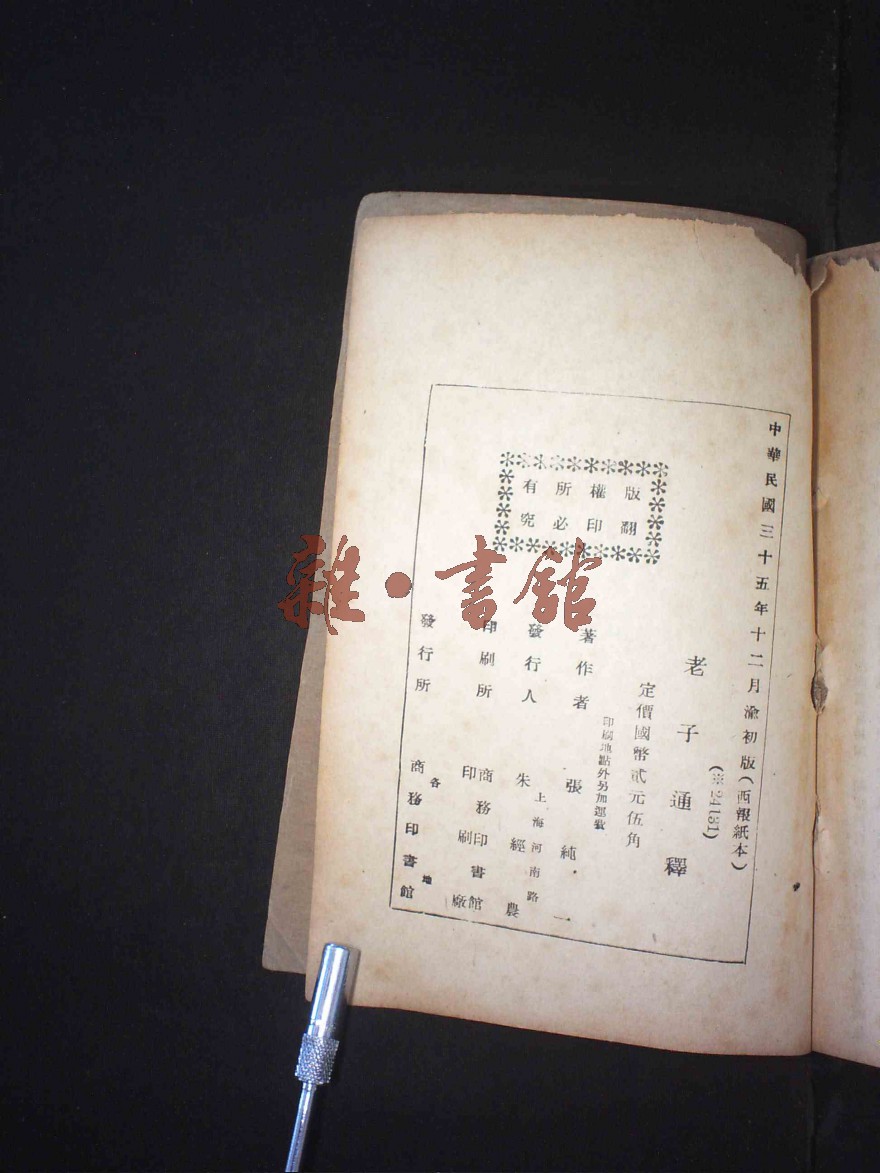 中華民國三十五年十二月渝初版（西報紙本）
（※24131）
老子通釋
定價國幣貳元伍角
印刷地點外另加運費
版權所有
翻印必究
著作者 張純一
發行人 朱經農
上海河南路
印刷所 商務印書館
印刷廠
發行所 商務印書館
各地
雜·書館